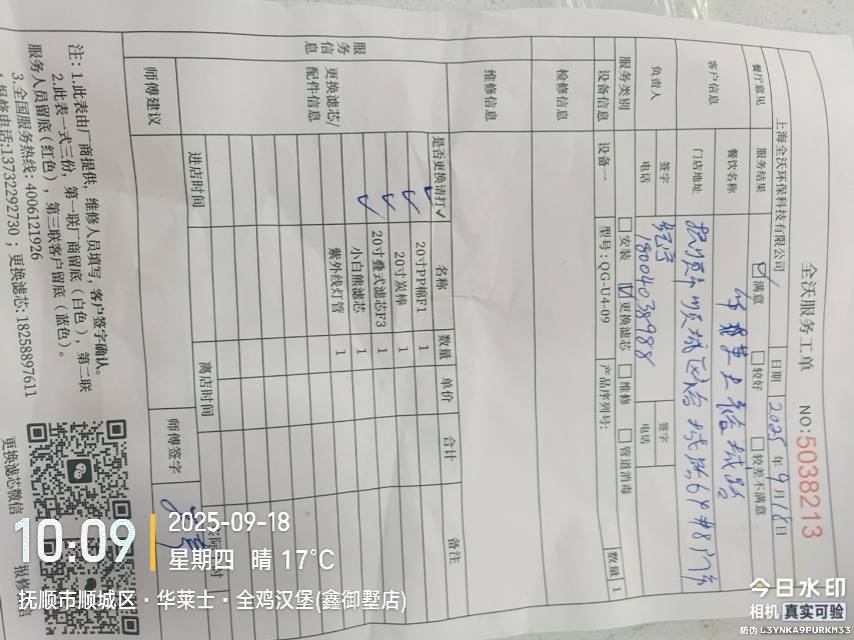 全沃服务工单 NO:5038213
上海全沃环保科技有限公司 日期 2025 年 9 月 18 日
餐厅意见 服务结果 ☑满意 □较好 □较差不满意
客户信息 餐饮名称
门店地址 抚顺市顺城区裕城路64#8门市
负责人 签字 签字
电话 18004038988 电话
服务类别 □安装 ☑更换滤芯 □维修 □管道消毒
设备信息 设备一 型号:QG-U4-09 产品序列号: 数量 1
检修信息
维修信息
服务信息
更换滤芯/配件信息
是否更换请打✓ 名称 数量 单价 合计 备注
✓ 20寸PP棉F1 1
✓ 20寸炭棒 1
✓ 20寸叠式滤芯F3 1
✓ 小白熊滤芯 1
紫外线灯管 1
进店时间 离店时间
师傅建议 师傅签字
注:1.此表由厂商提供,维修人员填写,客户签字确认。
2.此表一式三份,第一联厂商留底(白色),第二联
服务人员留底(红色),第三联客户留底(蓝色)。
3.全国服务热线:4006121926
报修电话:13732292730;更换滤芯:18258897611
更换滤芯微信
报修微信
10:09
2025-09-18
星期四 晴 17℃
抚顺市顺城区·华莱士·全鸡汉堡(鑫御墅店)
今日水印
相机 真实可验
防伪 L3YNKA9PURKM33